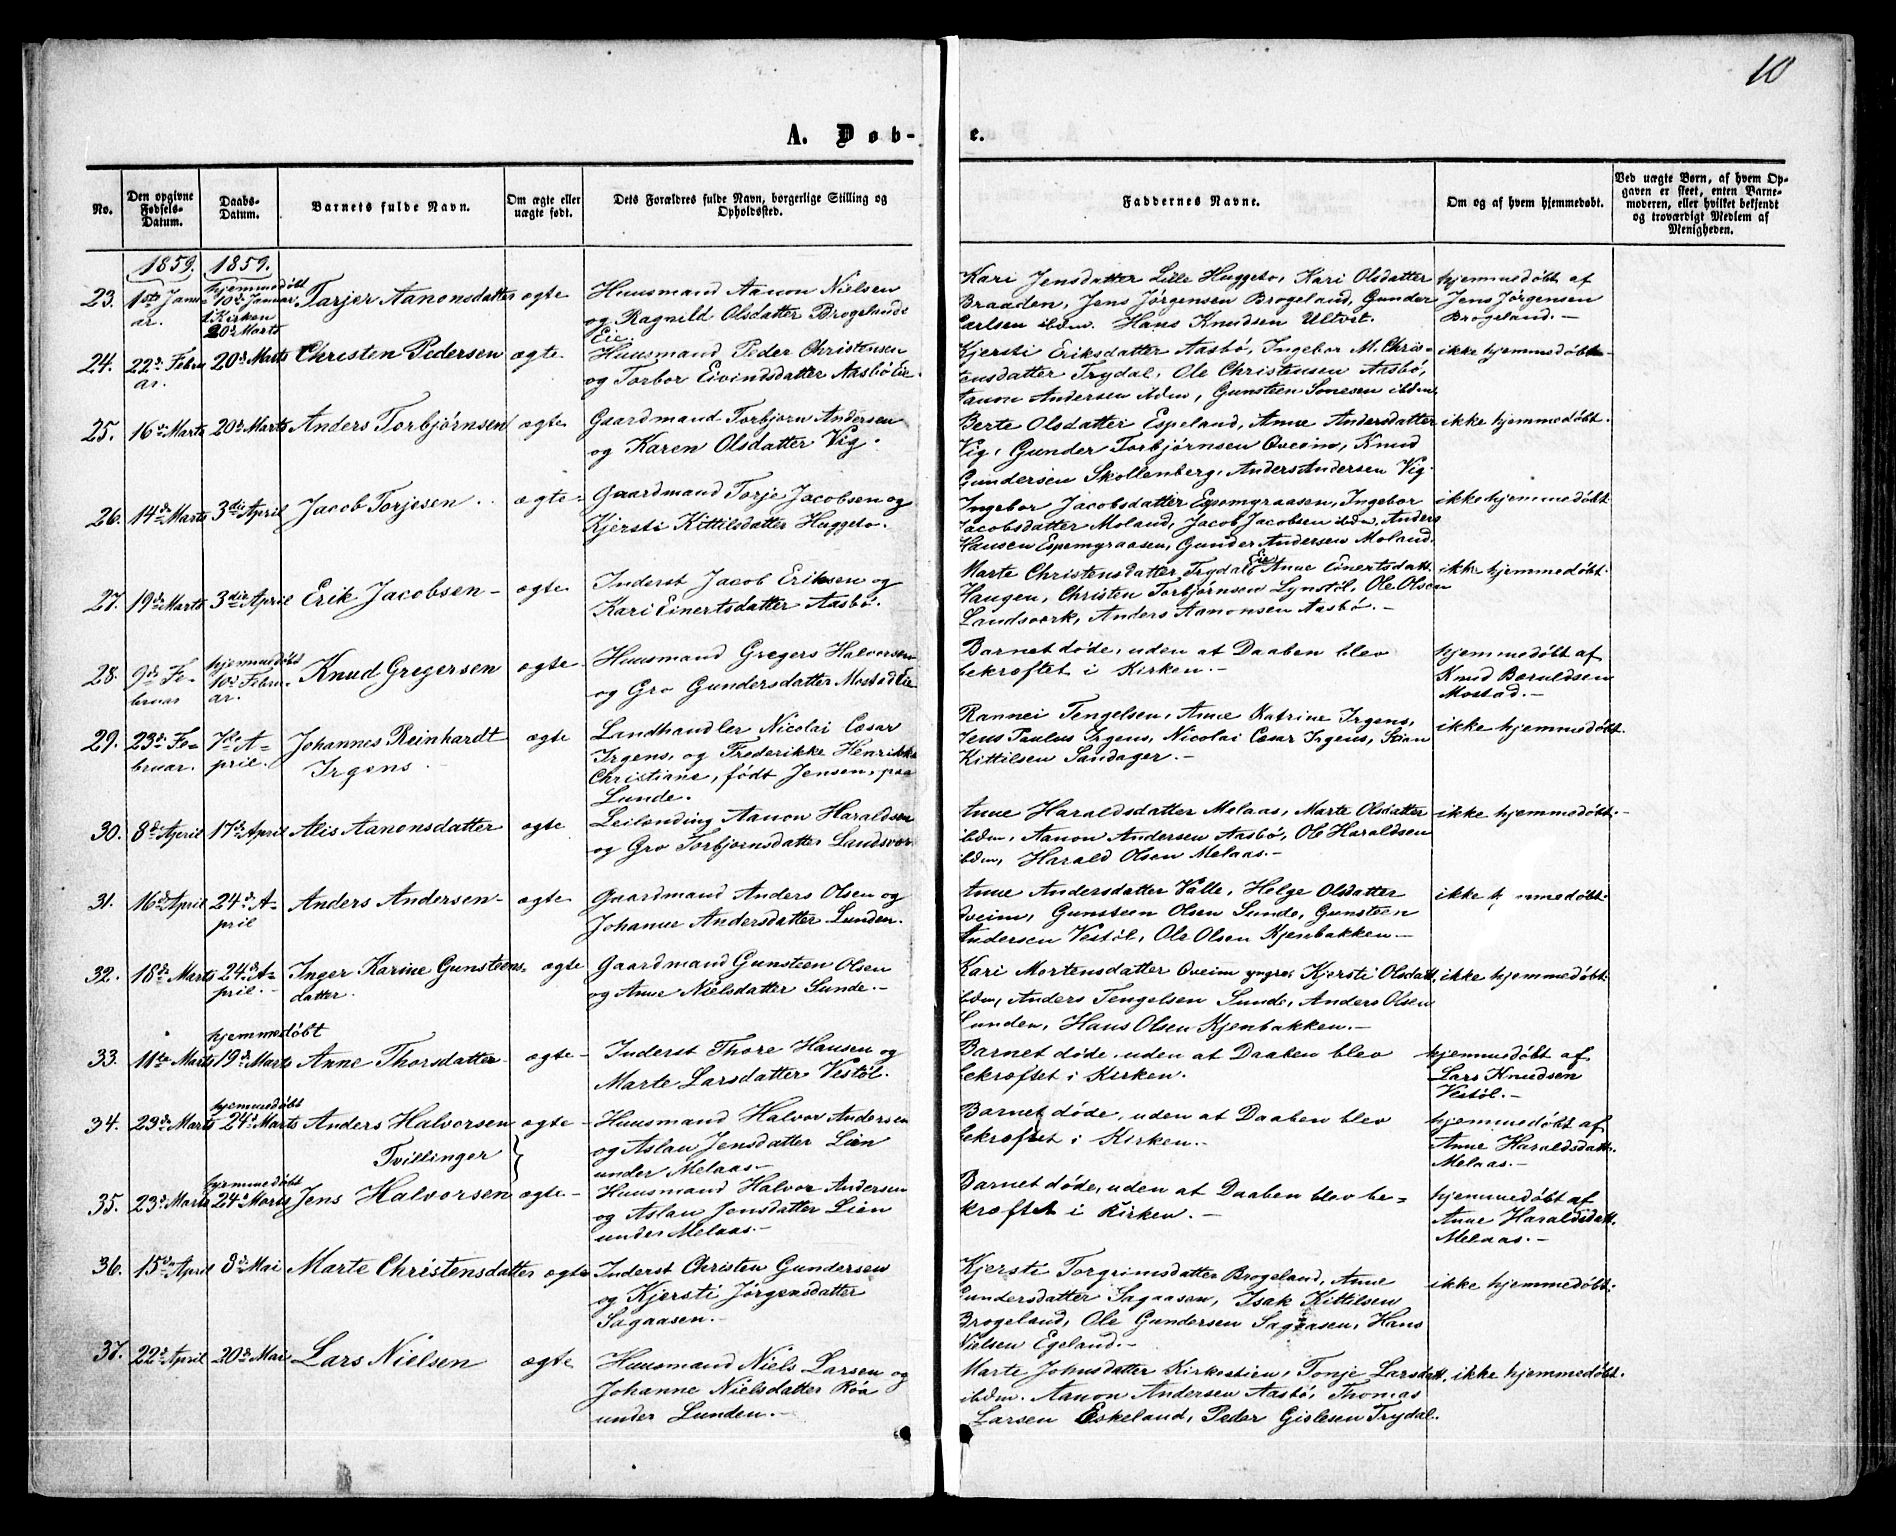 10
A. Døb-
e.
No.
Den opgivne Fødsels-Datum.
Daabs-Datum.
Barnets fulde Navn.
Om ægte eller uægte født.
Dets Forældres fulde Navn, borgerlige Stilling og Opholdssted.
Faddernes Navne.
Om og af hvem hjemmedøbt.
Ved uægte Børn, af hvem Opgaven er skeet, enten Barnemoderen, eller hvilket bekjendt og troværdigt Medlem af Menigheden.
1859. 1859.
23. 1ste Januar. hjemmedøbt 10de Januar, i Kirken 20de Marts Tarjer Aanonsdatter ægte
Huusmand Aanon Nielsen
og Ragnild Olsdatter Brogelands
Eie
Kari Jensdatter Lille Huggeto, Kari Olsdatter
Braaden, Jens Jørgensen Brogeland, Gunder
Carlsen ibdm. Hans Knudsen Ultvet.
hjemmedøbt af
Jens Jørgensen
Brogeland.-
24. 22de Februar. 20de Marts Christen Pedersen ægte
Huusmand Peder Christensen
og Torbor Eivindsdatter Aasbø Eie.
Kjersti Eriksdatter Aasbø, Ingebor M. Chris-
tensdatter Trydal, Ole Christensen Aasbø,
Aanon Andersen ibdm, Gunsteen Sonesen ibdm.
ikke hjemmedøbt.
25. 16de Marts 20de Marts Anders Torbjørnsen ægte
Gaardmand Torbjørn Andersen
og Karen Olsdatter Vig.
Berte Olsdatter Espeland, Anne Andersdatter
Vig, Gunder Torbjørnsen Øveim, Knud
Gundersen Skollenberg, Anders Andersen Vig.
ikke hjemmedøbt.
26. 14de Marts 3die April Jacob Torjesen. ægte-
Gaardmand Torje Jacobsen og
Kjersti Kittilsdatter Huggeto.
Ingebor Jacobsdatter Espemyraasen, Ingebor
Jacobsdatter Moland, Jacob Jacobsen ibdm, Anders
Hansen Espemyraasen, Gunder Andersen Moland.
ikke hjemmedøbt
27. 19de Marts 3die April Erik Jacobsen- ægte
Inderst Jacob Eriksen og
Kari Einertsdatter Aasbø.
Marte Christensdatter Trydals Eie, Anne Einertsdatt.
Haugen, Christen Torbjørnsen Lynstøl, Ole Olsen
Landsværk, Anders Aanonsen Aasbø.-
ikke hjemmedøbt.
28. 9de Februar hjemmedøbt 10de Februar. Knud Gregersen ægte-
Huusmand Gregers Halvorsen
og Gro Gundersdatter Mostad Eie
Barnet døde, uden at Daaben blev
bekræftet i Kirken.-
hjemmedøbt af
Knud Baruldsen
Mostad.-
29. 23de Februar. 7de April. Johannes Reinhardt
Irgens ægte
Landhandler Nicolai Cæsar
Irgens, og Frederikke Henrikke
Christiane, født Jensen, paa
Lunde.
Rannei Tengelsen, Anne Katrine Irgens,
Jens Paulus Irgens, Nicolai Cæsar Irgens, Stian
Kittilsen Sandager.-
ikke hjemmedøbt.
30. 8de April 17de April Alis Aanonsdatter ægte
Leilænding Aanon Haraldsen
og Gro Torbjørnsdatter Landsvær
Anne Haraldsdatter Melaas, Marte Olsdatter
ibdm, Aanon Andersen Aasbø, Ole Haraldsen
ibdm, Harald Olsen Melaas.-
ikke hjemmedøbt.-
31. 16de April 24de April Anders Andersen- ægte
Gaardmand Anders Olsen og
Johanne Andersdatter Lunden.
Anne Andersdatter Valle, Helge Olsdatter
Øveim, Gunsteen Olsen Sunde, Gunsteen
Andersen Vestøl, Ole Olsen Kjenbakken-
ikke hjemmedøbt.
32. 18de Marts 24de April.- Inger Karine Gunsteens-
datter. ægte
Gaardmand Gunsteen Olsen
og Anne Nielsdatter Sunde.-
Kari Mortensdatter Øveim yngre, Kjersti Olsdatt.
ibdm, Anders Tengelsen Sunde, Anders Olsen
Lunden, Hans Olsen Kjenbakken.-
ikke hjemmedøbt.
33. 11te Marts hjemmedøbt 19de Marts Anne Thorsdatter ægte-
Inderst Thore Hansen og
Marte Larsdatter Vestøl.
Barnet døde, uden at Daaben blev
bekræftet i Kirken.
hjemmedøbt af
Lars Knudsen
Vestøl.-
34. 23de Marts hjemmedøbt 24de Marts Anders Halvorsen ægte-
Tvillinger }
Huusmand Halvor Andersen
og Aslau Jensdatter Lien
under Melaas-
Barnet døde, uden at Daaben blev
bekræftet i Kirken.-
hjemmedøbt af
Anne Haraldsdatt.
Melaas.-
35. 23de Marts hjemmedøbt 24de Marts Jens Halvorsen ægte-
Huusmand Halvor Andersen
og Aslau Jensdatter Lien
under Melaas.-
Barnet døde, uden at Daaben blev be-
kræftet i Kirken.-
hjemmedøbt af
Anne Haraldsdatt.
Melaas.-
36. 15de April 8de Mai Marte Christensdatter ægte
Inderst Christen Gundersen
og Kjersti Jørgensdatter
Sagaasen.-
Kjersti Torgrimsdatter Brogeland, Anne
Gundersdatter Sagaasen, Isak Kittilsen
Brogeland, Ole Gundersen Sagaasen, Hans
Nielsen Egeland.-
ikke hjemmedøbt.
37. 22de April 20de Mai Lars Nielsen ægte
Huusmand Niels Larsen og
Johanne Nielsdatter Røa
under Lunden.-
Marte Johnsdatter Kirkestien, Tonje Larsdatt.
ibdm. Aanon Andersen Aasbø, Thomas
Larsen Eskeland, Peder Gislesen Trydal.
ikke hjemmedøbt.